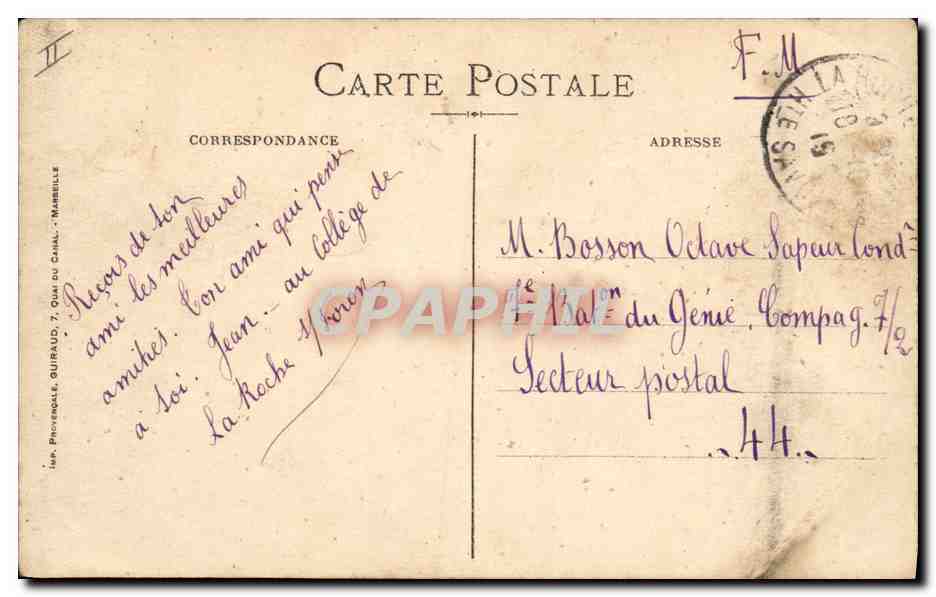 II
CARTE POSTALE
F. M
CORRESPONDANCE
ADRESSE
Reçois de ton
ami les meilleures
amitiés. Ton ami qui pense
à toi. Jean. - au Collège de
La Roche s/Foron
M. Bosson Octave Sapeur Cond^r
7e Bat^on du Génie. Compag. 7/2
Secteur postal
44
IMP. PROVENÇALE, GUIRAUD, 7, QUAI DU CANAL. - MARSEILLE
CPAPHIL
LA ROCHE
HTE SAV